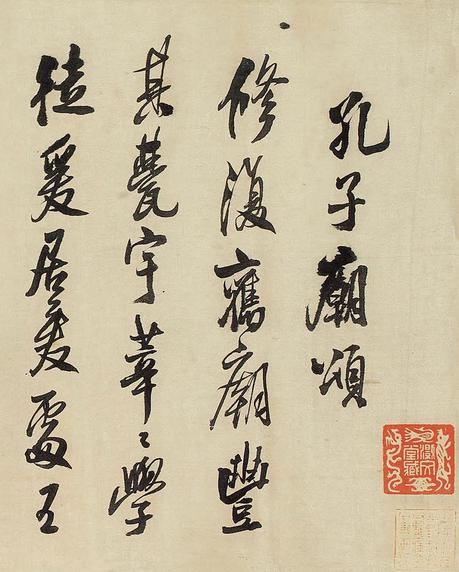 孔子廟頌
修復舊廟豐
其甍宇莘〻學
徒爰居爰處王